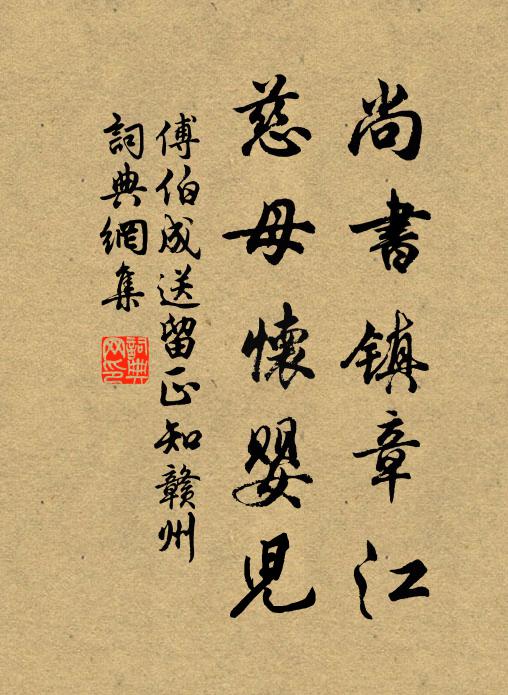 尚書鎮章江
慈母懷嬰兒
傅伯成送留正知贛州
詞典網集
詞典網印